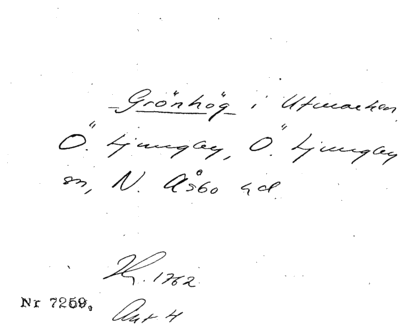 Grönhög i Utmarken
Ö. Ljungby, Ö. Ljungby
sn, N. Åsbo hd.
Kr. 1762
Nr 7259,
Akt 4